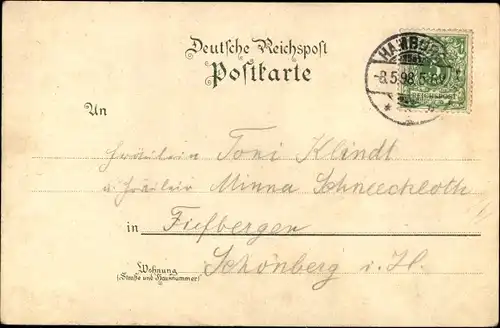 Deutsche Reichspost
Postkarte
HAMBURG
-8.5.98. 5-6
REICHSPOST
An
Fräulein Toni Klindt
u Fräulein Minna Schneekloth
in Fiefbergen
Wohnung
(Straße und Hausnummer)
Schönberg i. H.